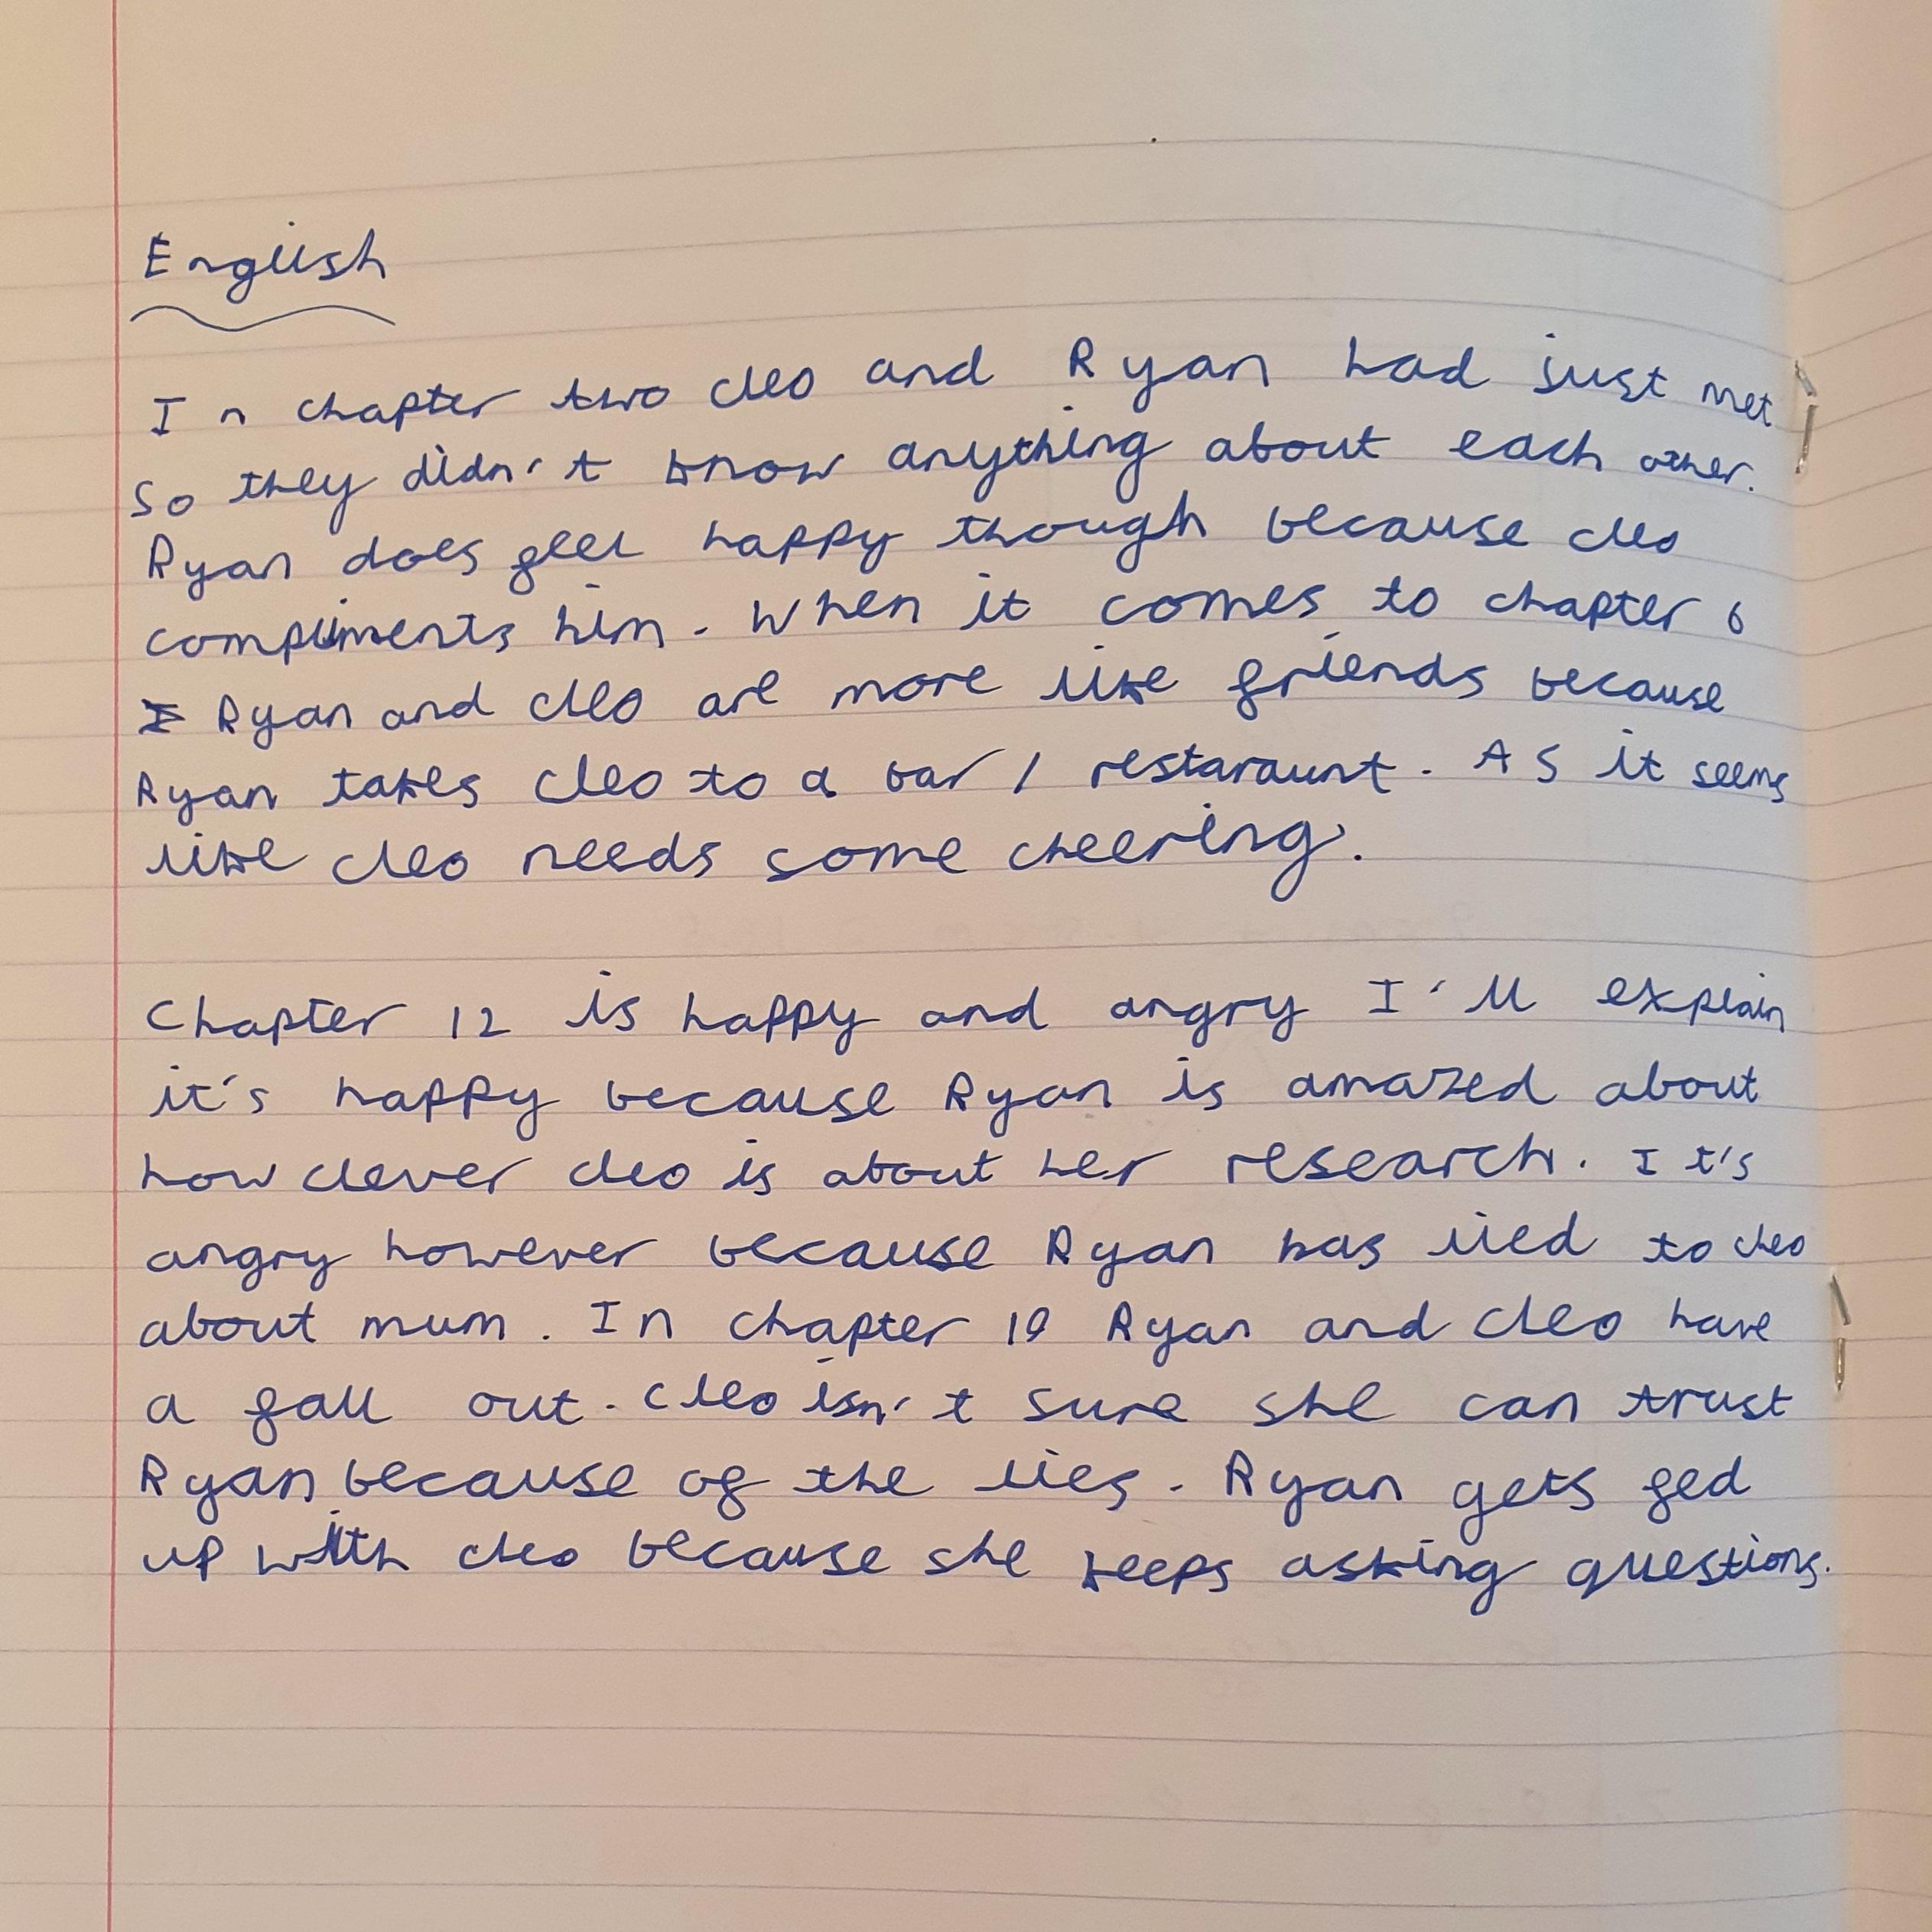 English
In chapter two cleo and Ryan had just met
so they didn't know anything about each other.
Ryan does feel happy though because cleo
compliments him. When it comes to chapter 6
Ryan and cleo are more like friends because
Ryan takes cleo to a bar / restaraunt. As it seems
like cleo needs some cheering.
Chapter 12 is happy and angry I'll explain
it's happy because Ryan is amazed about
how clever cleo is about her research. It's
angry however because Ryan has lied to cleo
about mum. In chapter 19 Ryan and cleo have
a fall out. Cleo isn't sure she can trust
Ryan because of the lies. Ryan gets fed
up with cleo because she keeps asking questions.